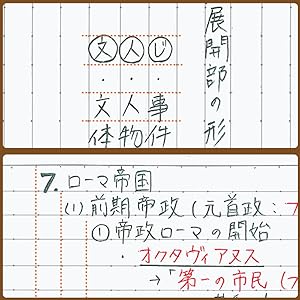 展開部の形
じ・事件
人・人物
文・文体
7. ローマ帝国
(1) 前期帝政 (元首政:
① 帝政ローマの開始
・オクタヴィアヌス
→「第一の市民 (